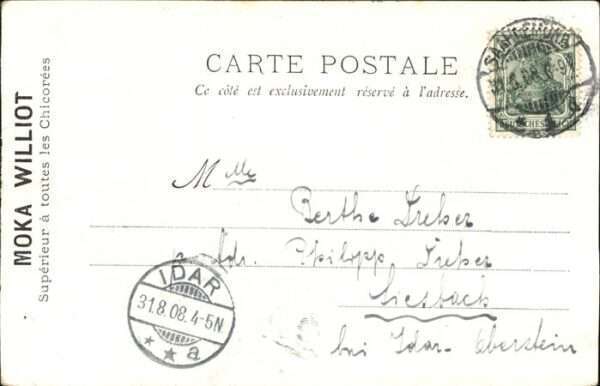 CARTE POSTALE
Ce côté est exclusivement réservé à l'adresse.
MOKA WILLIOT
Supérieur à toutes les Chicorées
Mlle
Berthe Treher
Adr. Philipp Treher
Siesbach
bei Idar-Oberstein
IDAR
31.8.08.4-5N
* * a